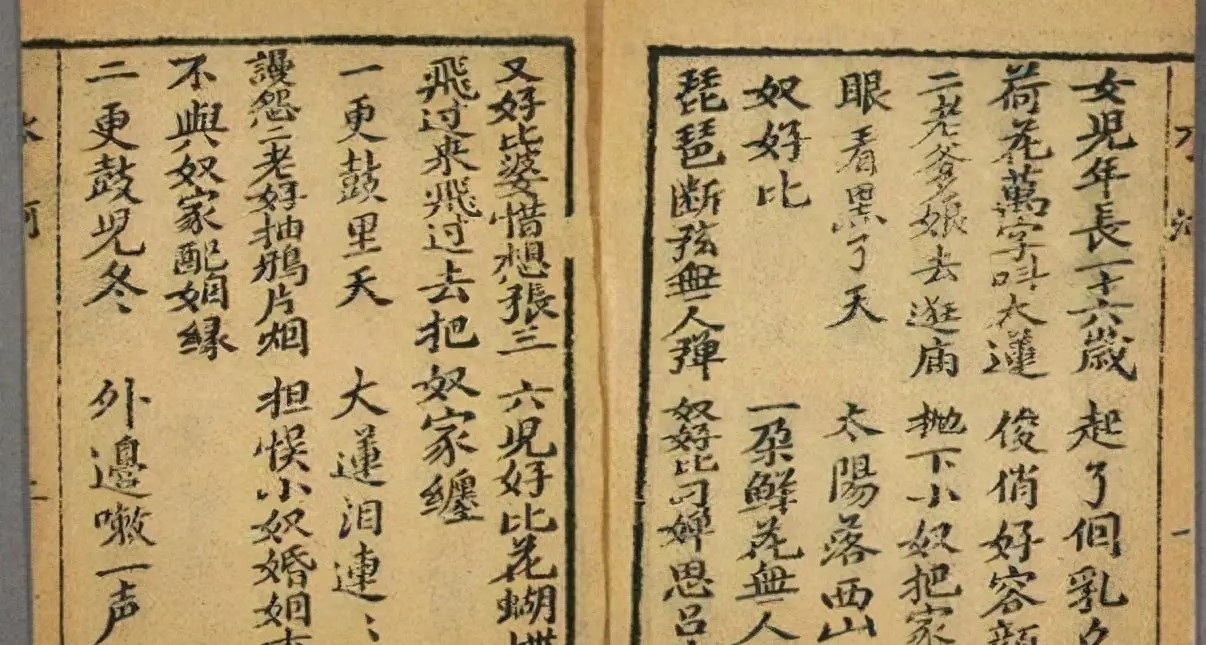 女児年長一十六歲　起了個乳名
荷花萬字呌大蓮　俊俏好容顔
二老爹娘去逛廟　抛下小奴把家
眼看黑了天　太陽落西山
奴好比　一朶鮮花無人
琵琶断弦無人弾　奴好比刁嬋思呂
又好比婆惜想張三　六児好比花蝴蝶
飛过来飛过去把奴家纏
一更鼓里天　大蓮泪連〻
謾怨二老好抽鴉片烟　担悮小奴婚姻
不與奴家配姻緣
二更鼓児冬〻　外邊嗽一声